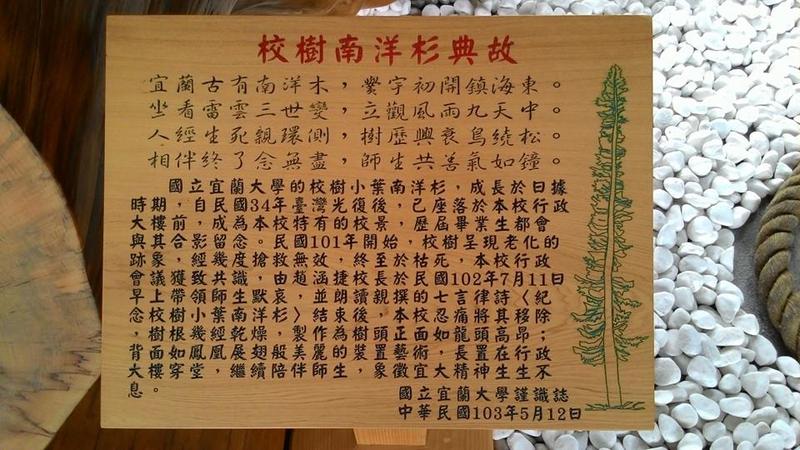 校樹南洋杉典故
宜蘭古有南洋木，黌宇初開鎮海東。
坐看雷雲三世變，立觀風雨九天中。
人經生死親環側，樹歷興衰鳥繞松。
相伴終了念無盡，師生共善氣如鐘。
國立宜蘭大學的校樹小葉南洋杉，成長於日據
時期，自民國34年臺灣光復後，已座落於本校行政
大樓前，成為本校特有的校景，歷屆畢業生都會
與其合影留念。民國101年開始，校樹呈現老化的
跡象，經幾度搶救無效，終至於枯死，本校行政
會議獲致共識，由趙涵捷校長於民國102年7月11日
早上帶領師生默哀，並朗讀親撰的七言律詩〈紀
念校樹小葉南洋杉〉結束後，本校忍痛將其移除
，樹根幾經乾燥，製作為樹頭正面如龍頭高昂；
背面如鳳凰展翅般美麗的裝置藝術，長置在行政
大樓穿堂，繼續陪伴師生，象徵宜大精神生生不
息。
國立宜蘭大學謹識誌
中華民國103年5月12日